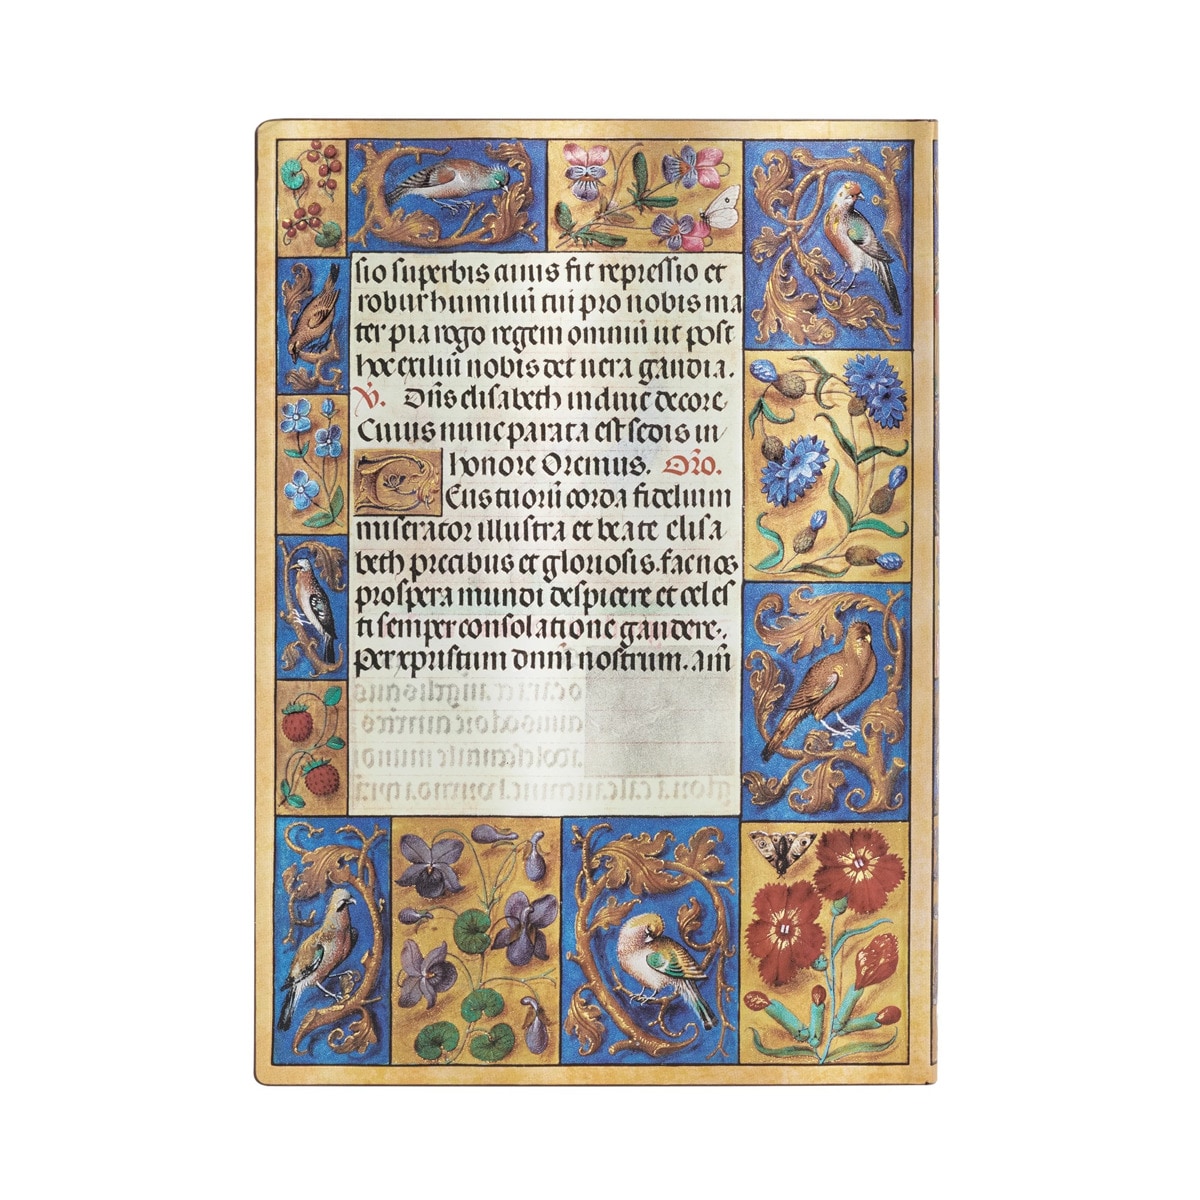 sio superbis cuius fit repressio et
robur humiliū tui pro nobis ma
ter pia rogo regem omniū ut post
hoc exiliū nobis det uera gaudia.
V. Dn̄s elisabeth induit decore
Cuius nunc parata est sedis in
honore Oremus. Oro.
Deus tuorū corda fidelium
miserator illustra et beate elisa
beth precibus et gloriosis. fac nos
prospera mundi despicere et celes
ti semper consolatione gaudere.
Per xpristum dnm̄ nostrum. am̄